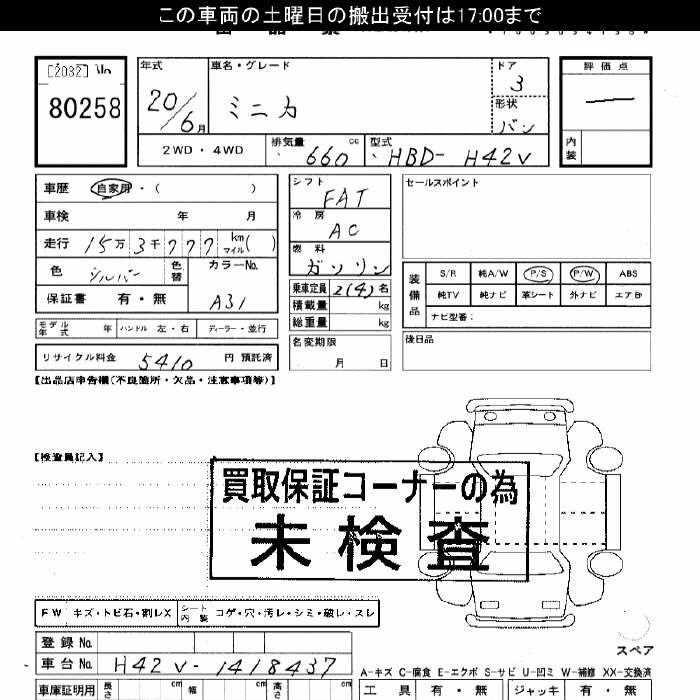 この車両の土曜日の搬出受付は17:00まで
[2032] No
80258
年式
20/6月
車名・グレード
ミニカ
ドア
3
形状
バン
評価点
内装
2WD・4WD
排気量
660
cc
型式
HBD-H42V
車歴
自家用・( )
車検
年 月
走行
15万3千777
km
マイル
( )
色
シルバー
色替
カラーNo.
A31
保証書 有・無
モデル年式 年
ハンドル 左・右
ディーラー・並行
リサイクル料金 5410 円 預託済
シフト
FAT
冷房
AC
燃料
ガソリン
乗車定員 2(4) 名
積載量 kg
総重量 kg
名変期限
月 日
セールスポイント
装備品
S/R 純A/W P/S P/W ABS
純TV 純ナビ 革シート 外ナビ エアB
ナビ型番:
後日品
【出品店申告欄(不良箇所・欠品・注意事項等)】
【検査員記入】
買取保証コーナーの為
未検査
FW キズ・トビ石・割レX
シート内装 コゲ・穴・汚レ・シミ・破レ・スレ
登録 No.
車台 No. H42V-1418437
車庫証明用 長さ cm 幅 cm 高さ cm
スペア
A-キズ C-腐食 E-エクボ S-サビ U-凹ミ W-補修 XX-交換済
工具 有・無 ジャッキ 有・無